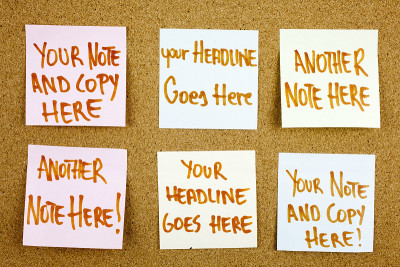 YOUR NOTE
AND COPY
HERE
your HEADLINE
Goes Here
ANOTHER
NOTE HERE
ANOTHER
NOTE HERE!
YOUR
HEADLINE
GOES HERE
YOUR NOTE
AND COPY
HERE!